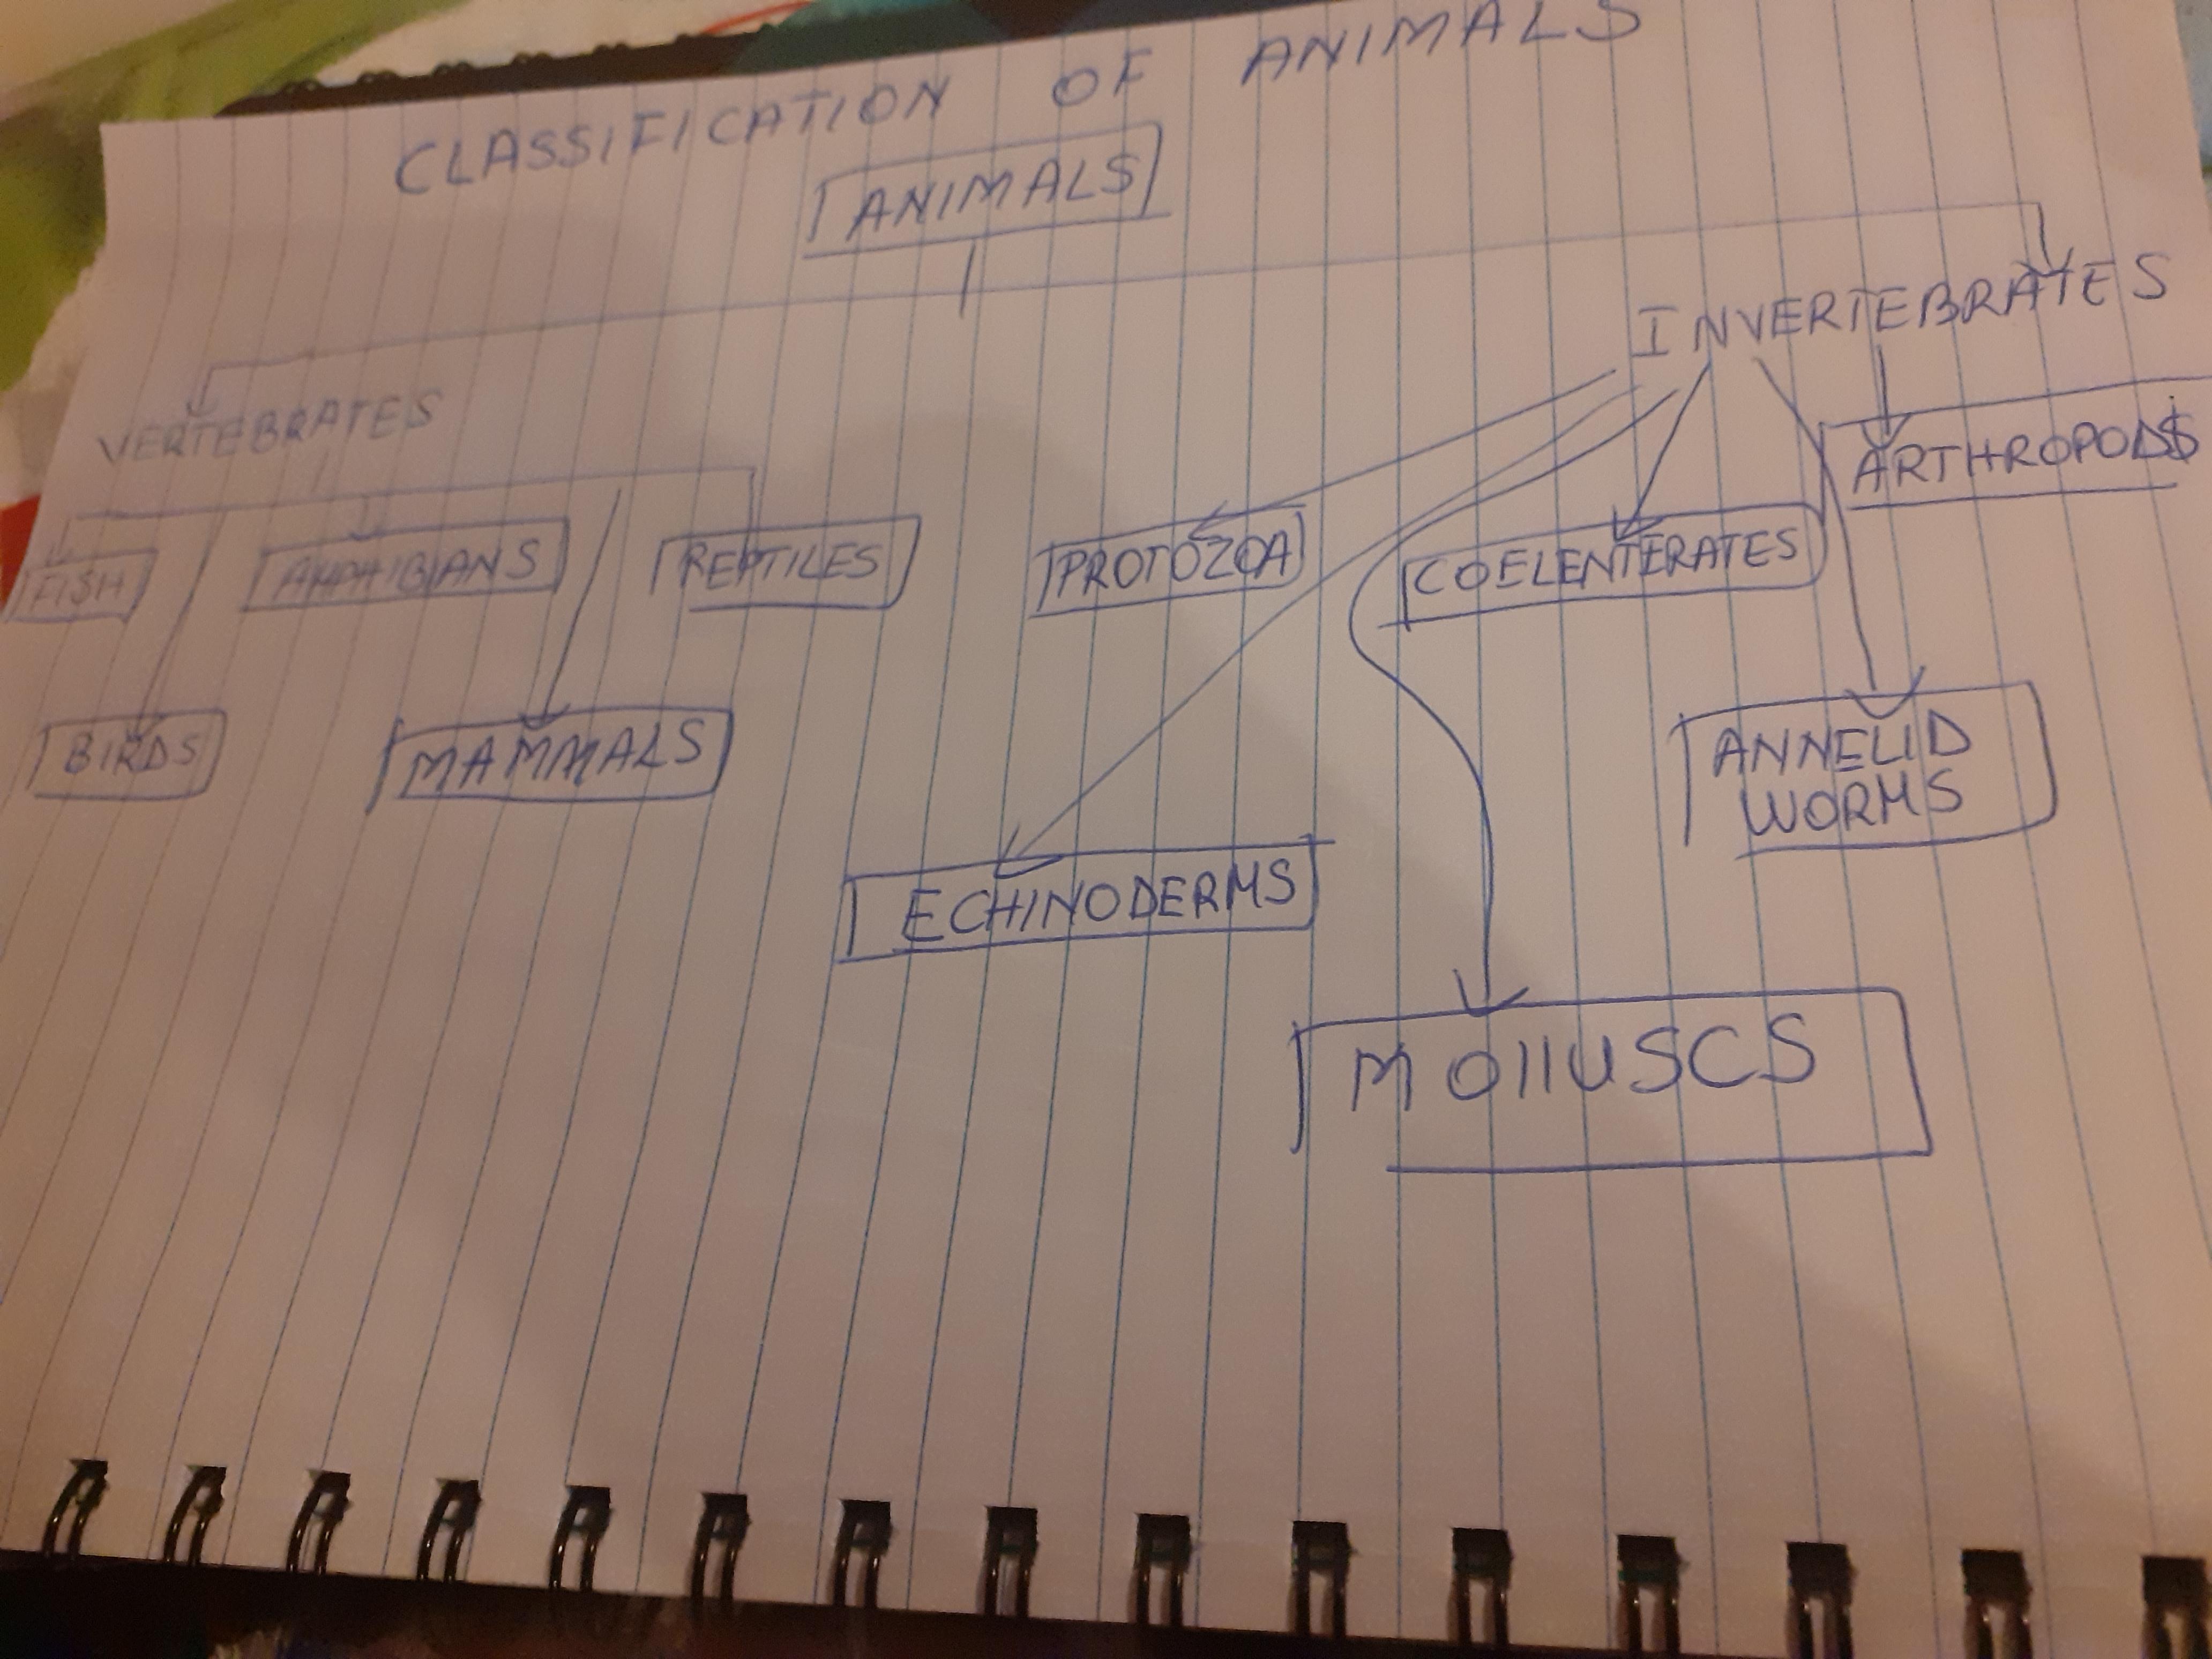 CLASSIFICATION OF ANIMALS
ANIMALS
VERTEBRATES
INVERTEBRATES
FISH
AMPHIBIANS
REPTILES
BIRDS
MAMMALS
PROTOZOA
COELENTERATES
ARTHROPODS
ANNELID
WORMS
ECHINODERMS
MOllUSCS